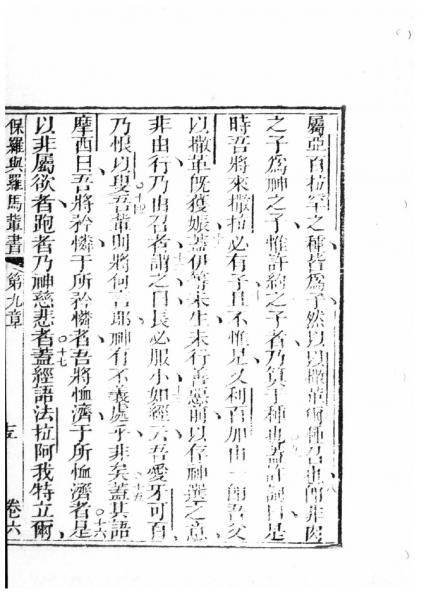 屬亞百拉罕之種皆為子然以以撒革爾種召也即非肉
之子為神之子惟許約之子者乃算于種也蓋許詞曰是
時吾將來撒拉必有子且不惟是又利百加由一即吾父
以撒革既獲娠蓋伊等未生未行善惡前以存神選之意
非由行乃由召者謂之曰長必服小如經云吾愛牙可百
乃恨以叟吾輩則將何言耶神有不義處乎非矣蓋其語
摩西曰吾將矜憐于所矜憐者吾將恤濟于所恤濟者是
以非屬欲者跑者乃神慈悲者蓋經語法拉阿我特立爾
保羅與羅馬輩書 第九章 五 卷六